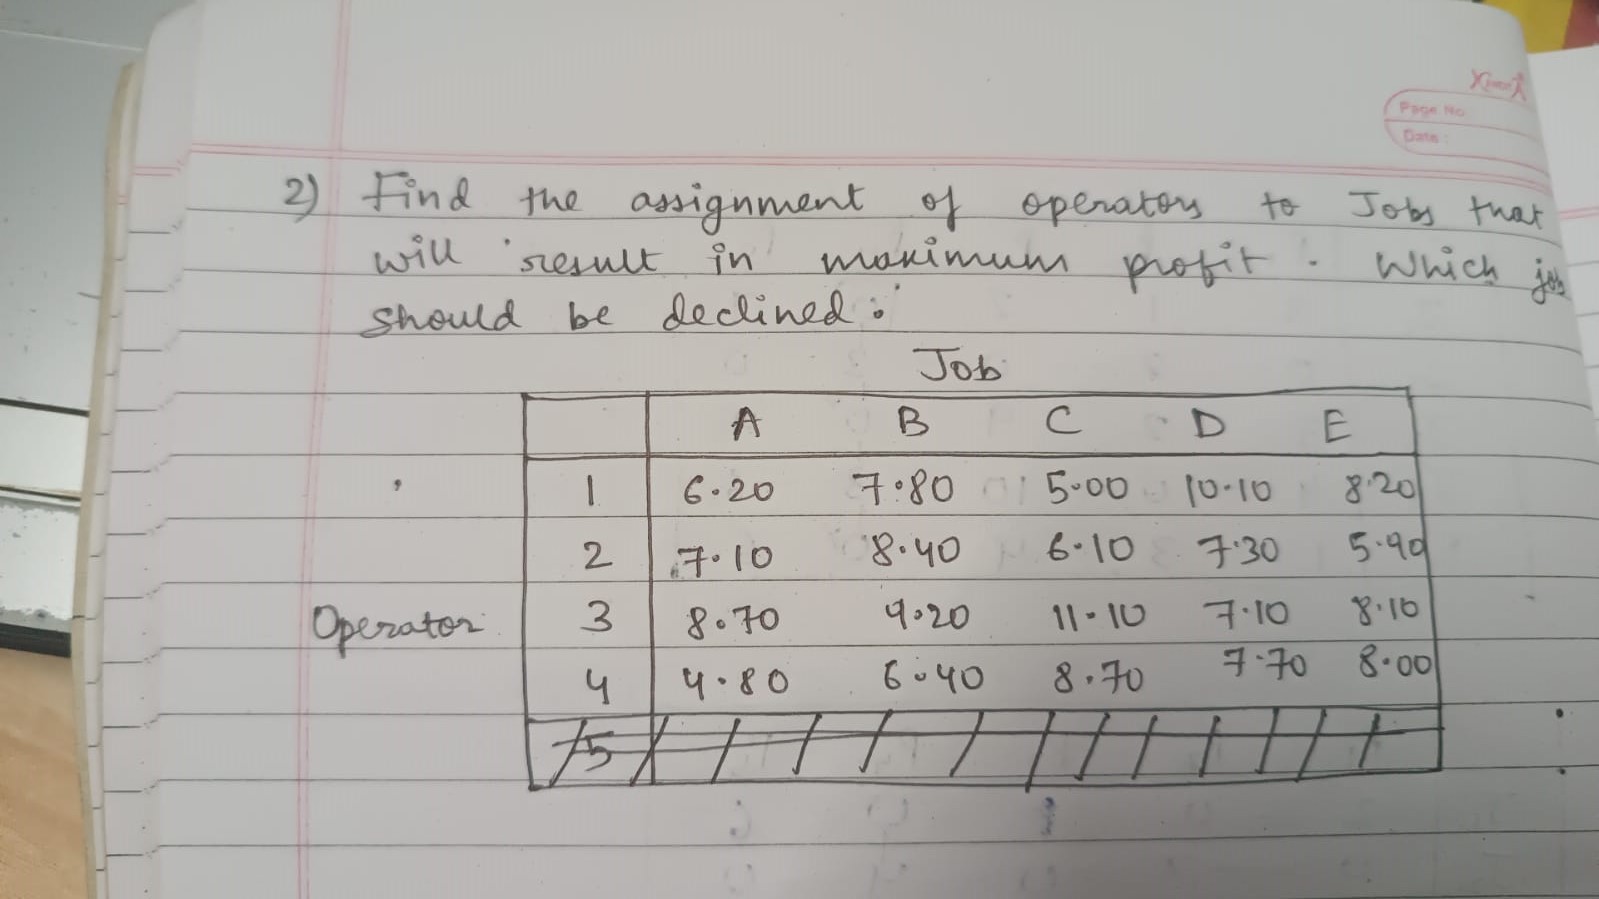 Page No
Date :
2) Find the assignment of operators to Jobs that
will result in maximum profit. Which job
should be declined:
Job
A B C D E
1 6.20 7.80 5.00 10.10 8.20
2 7.10 8.40 6.10 7.30 5.90
Operator 3 8.70 9.20 11.10 7.10 8.10
4 4.80 6.40 8.70 7.70 8.00
5